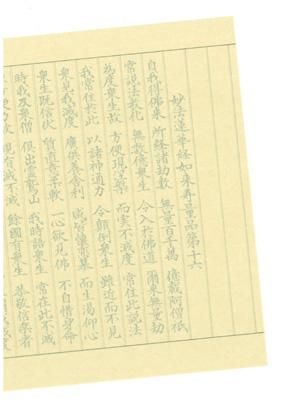 妙法蓮華経如来寿量品第十六
自我得佛来 所経諸劫数 無量百千萬 億載阿僧祇
常説法教化 無数億衆生 令入於佛道 爾来無量劫
為度衆生故 方便現涅槃 而実不滅度 常住此説法
我常住於此 以諸神通力 令顛倒衆生 雖近而不見
衆見我滅度 廣供養舎利 咸皆懐恋慕 而生渇仰心
衆生既信伏 質直意柔軟 一心欲見佛 不自惜身命
時我及衆僧 倶出霊鷲山 我時語衆生 常在此不滅
方便力故 現有滅不滅 餘国有衆生 恭敬信楽者